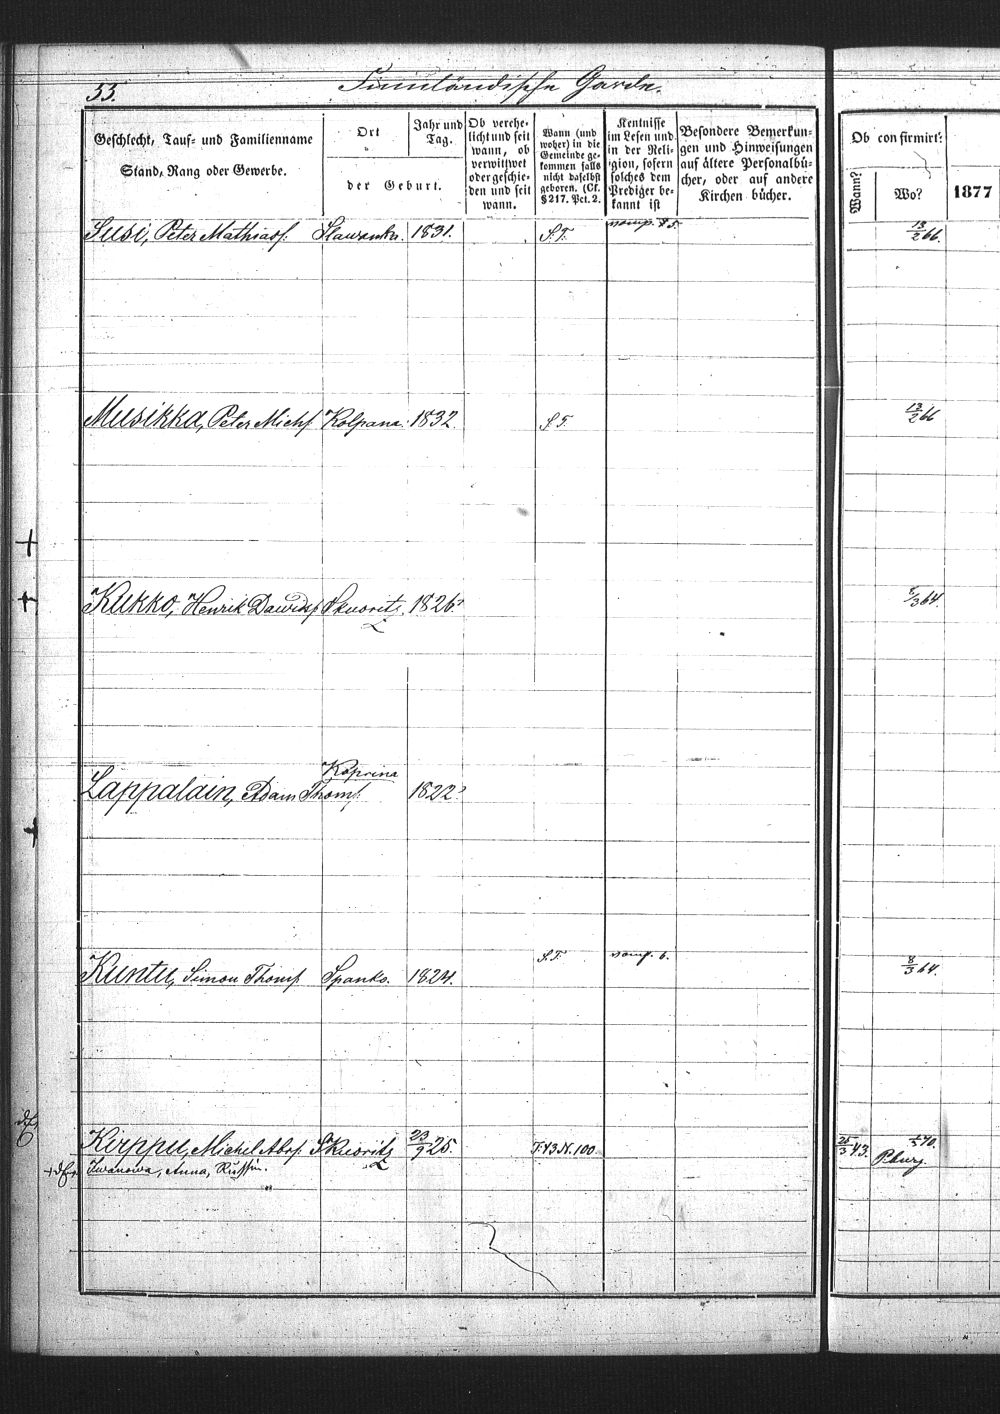 53.
Finnländische Garde.
Geschlecht, Tauf- und Familienname
Stand, Rang oder Gewerbe.
Ort
der Geburt.
Jahr und
Tag.
Ob verehe-
licht und seit
wann, ob
verwittwet
oder geschie-
den und seit
wann.
Wann (und
woher) in die
Gemeinde ge-
kommen falls
nicht daselbst
geboren. (Cf.
§ 217. Pct. 2.
Kentnisse
im Lesen und
in der Reli-
gion, sofern
solches dem
Prediger be-
kannt ist
Besondere Bemerkun-
gen und Hinweisungen
auf ältere Personalbü-
cher, oder auf andere
Kirchen bücher.
Ob confirmirt:
Wann?
Wo?
1877
Susi, Peter Mathiasf. Slawanka. 1831. S.T. 13/2 66.
Musikka, Peter Michf. Kolpana. 1832. S.T. 13/2 66
Kukko, Henrik Dawidsf Skuoritz. 1826? /3 64.
Kaprina
Lappalain, Adam Thomf. 1822?
S.T.
Kuntu, Simon Thomf. Spanko. 1824. 8/3 64.
Kirppu, Michel Abrf. Skuoritz 23/9 25. T. 43 N. 100 25/3 43. Pburg.
Iwanowa, Anna, Russin.